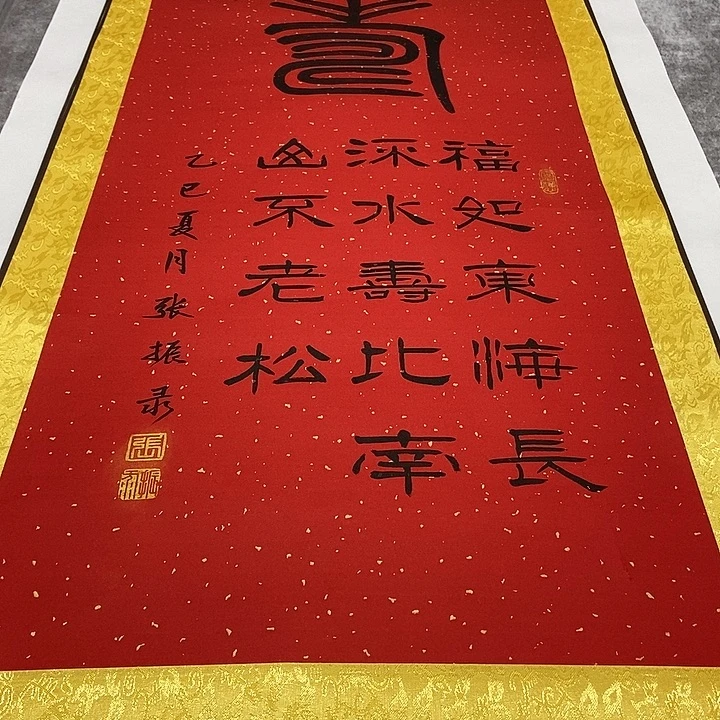 福如東海長
流水壽比南
山不老松
乙巳夏月张振录
張